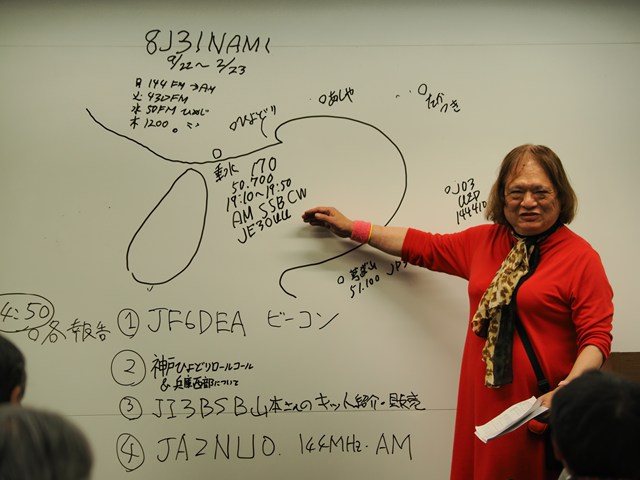 8J3INAMI
9/22〜2/23
日 144FM→AM
火 430FM
水 50FM ひめじ
木 1200
ひよどり
あしや
たかつき
垂水
170
50.700
19:10〜19:50
AM SSB CW
JE3OUU
JO3
UZD
144.410
51.100 JP3
4:50
各報告
① JF6DEA ビーコン
② 神戸ひよどりロールコール
& 兵庫西部について
③ JI3BSB山本さんのキット紹介・販売
④ JA2NUO. 144MHz・AM